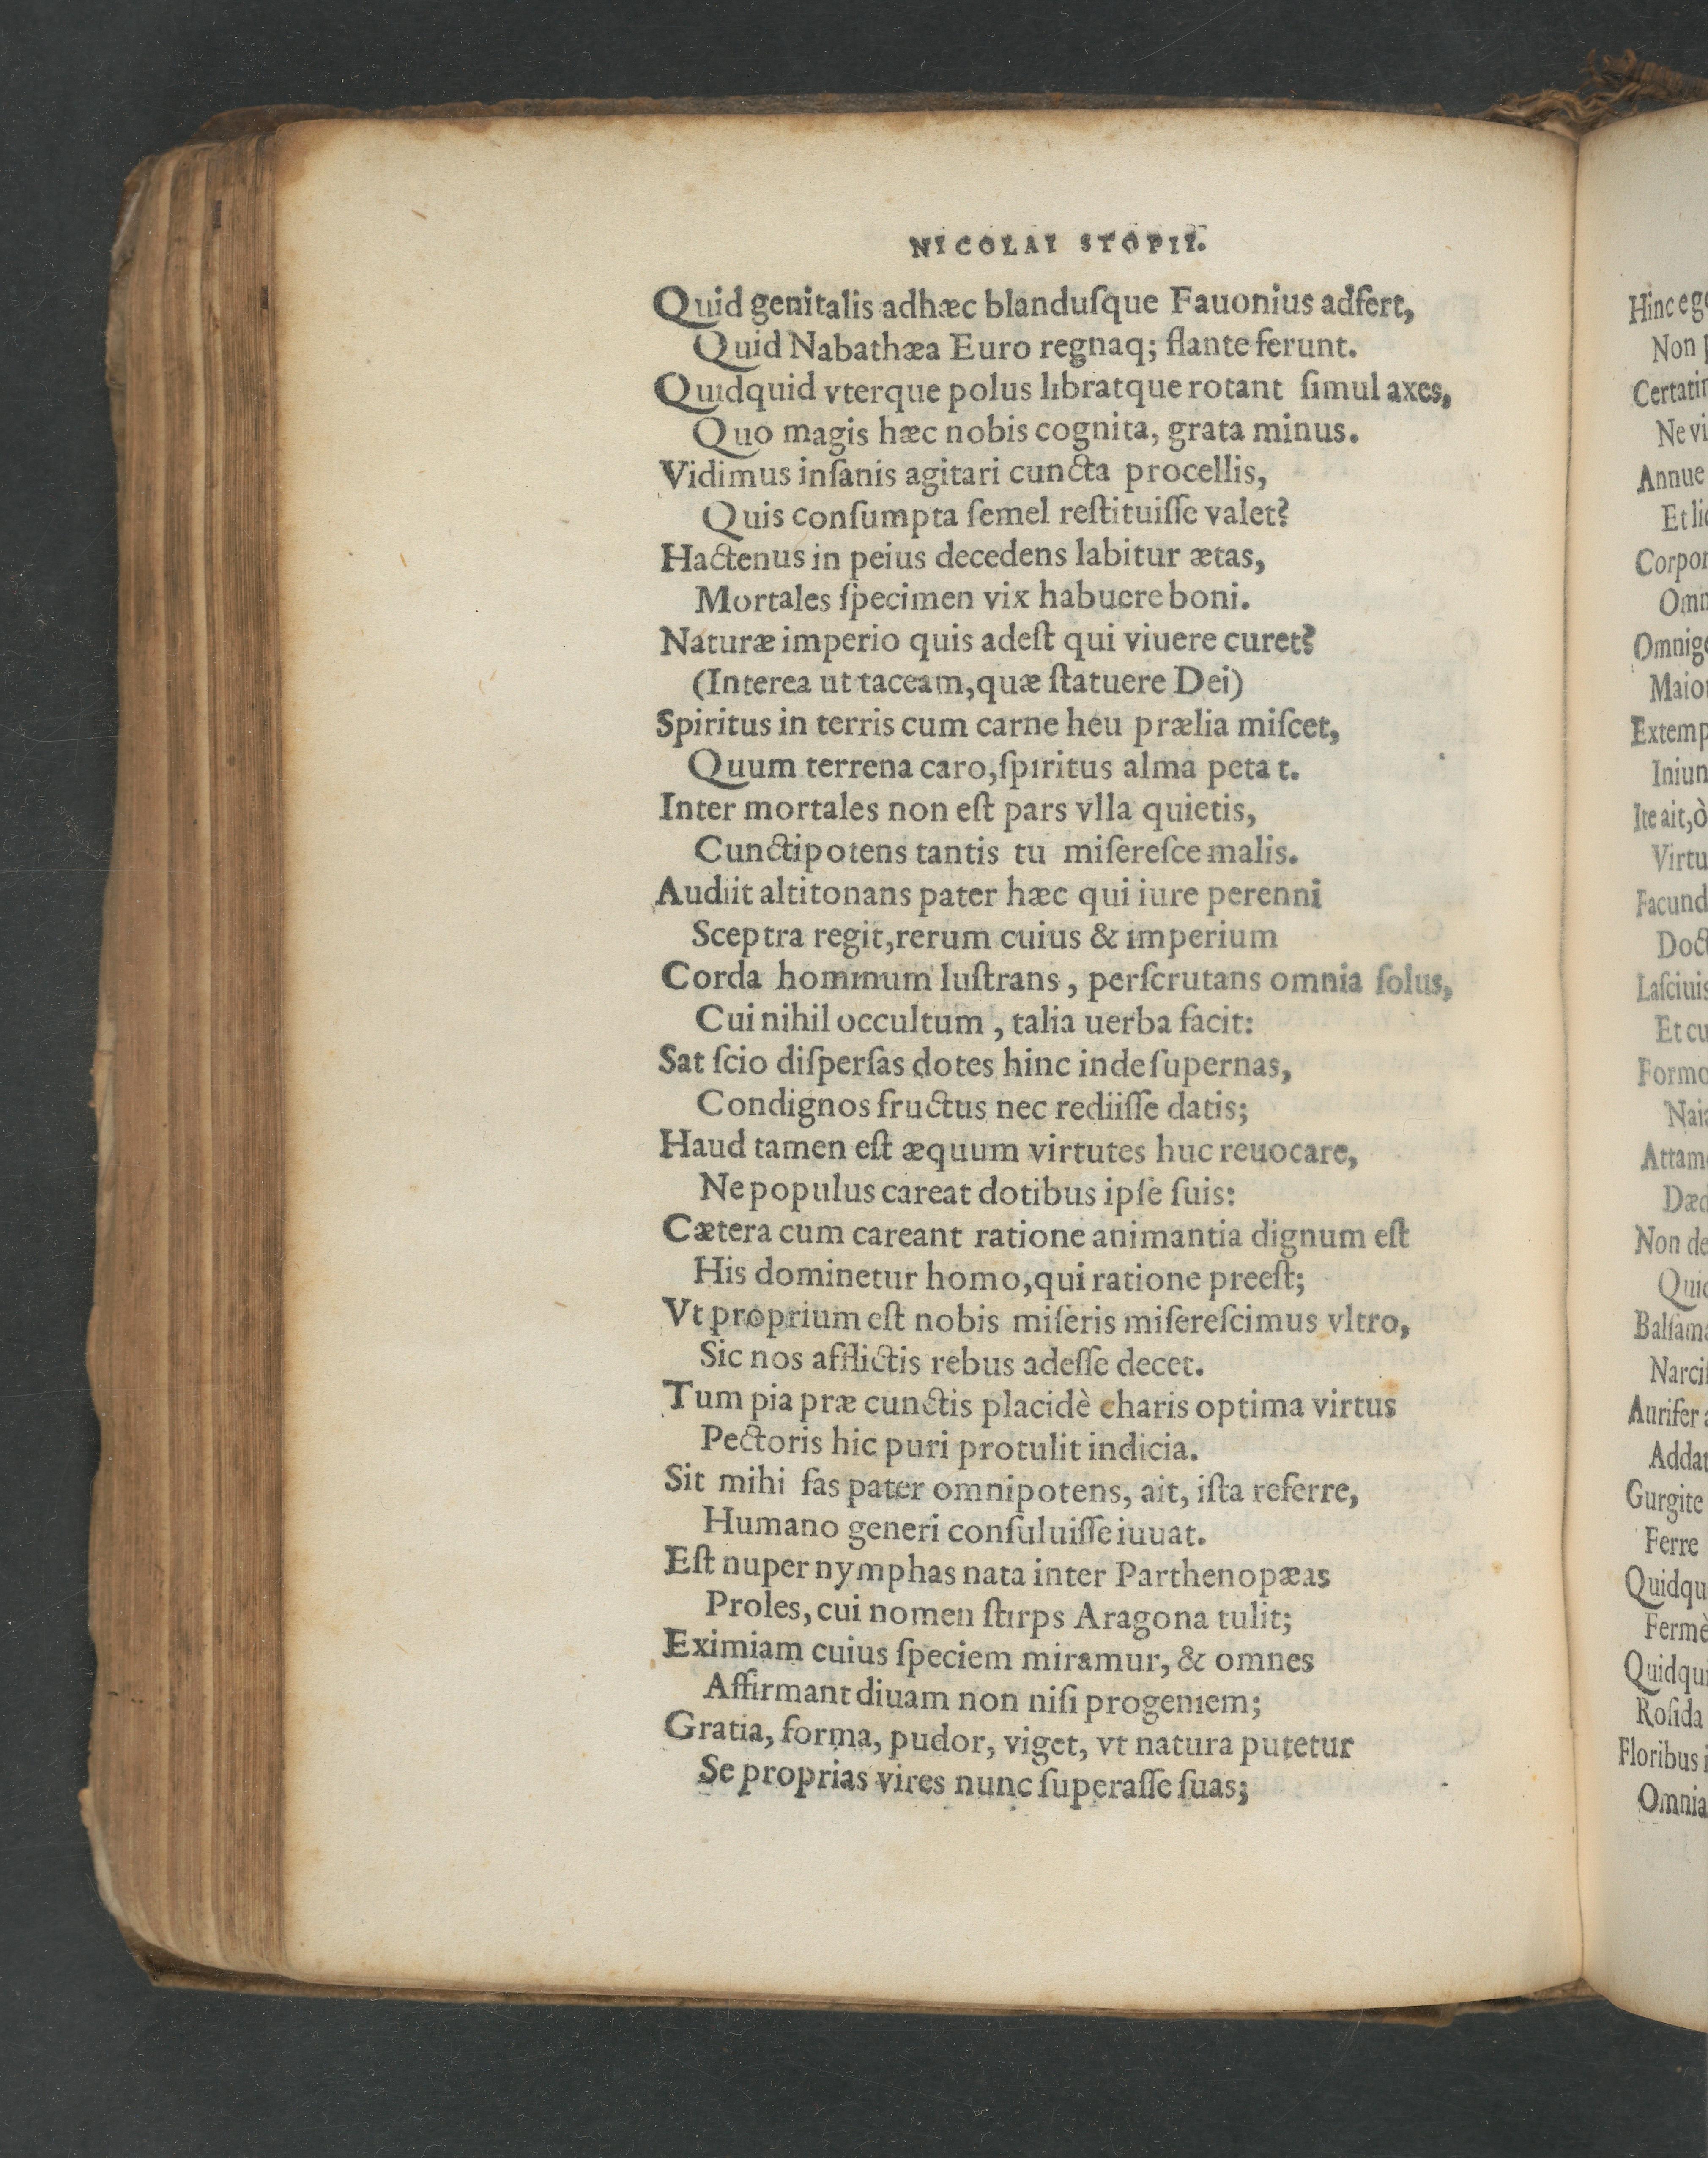 NICOLAI STOPII.
Quid genitalis adhæc blanduſque Fauonius adfert,
Quid Nabathæa Euro regnaq; flante ferunt.
Quidquid vterque polus libratque rotant ſimul axes,
Quo magis hæc nobis cognita, grata minus.
Vidimus inſanis agitari cuncta procellis,
Quis conſumpta ſemel reſtituiſſe valet?
Hactenus in peius decedens labitur ætas,
Mortales ſpecimen vix habuere boni.
Naturæ imperio quis adeſt qui viuere curet?
(Interea ut taceam, quæ ſtatuere Dei)
Spiritus in terris cum carne heu prælia miſcet,
Quum terrena caro, ſpiritus alma petat.
Inter mortales non eſt pars vlla quietis,
Cunctipotens tantis tu miſereſce malis.
Audiit altitonans pater hæc qui iure perenni
Sceptra regit, rerum cuius & imperium
Corda hominum luſtrans, perſcrutans omnia ſolus,
Cui nihil occultum, talia uerba facit:
Sat ſcio diſperſas dotes hinc inde ſupernas,
Condignos fructus nec rediiſſe datis;
Haud tamen eſt æquum virtutes huc reuocare,
Ne populus careat dotibus ipſe ſuis:
Cætera cum careant ratione animantia dignum eſt
His dominetur homo, qui ratione preeſt;
Vt proprium eſt nobis miſeris miſereſcimus vltro,
Sic nos afflictis rebus adeſſe decet.
Tum pia præ cunctis placidè charis optima virtus
Pectoris hic puri protulit indicia.
Sit mihi fas pater omnipotens, ait, iſta referre,
Humano generi conſuluiſſe iuuat.
Eſt nuper nymphas nata inter Parthenopæas
Proles, cui nomen ſtirps Aragona tulit;
Eximiam cuius ſpeciem miramur, & omnes
Affirmant diuam non niſi progeniem;
Gratia, forma, pudor, viget, vt natura putetur
Se proprias vires nunc ſuperaſſe ſuas;
Hinc
Non
Annue
Maior
Ite ait, ò
Et cu
Non de
Ferre
Roſida
Floribus
Omnia